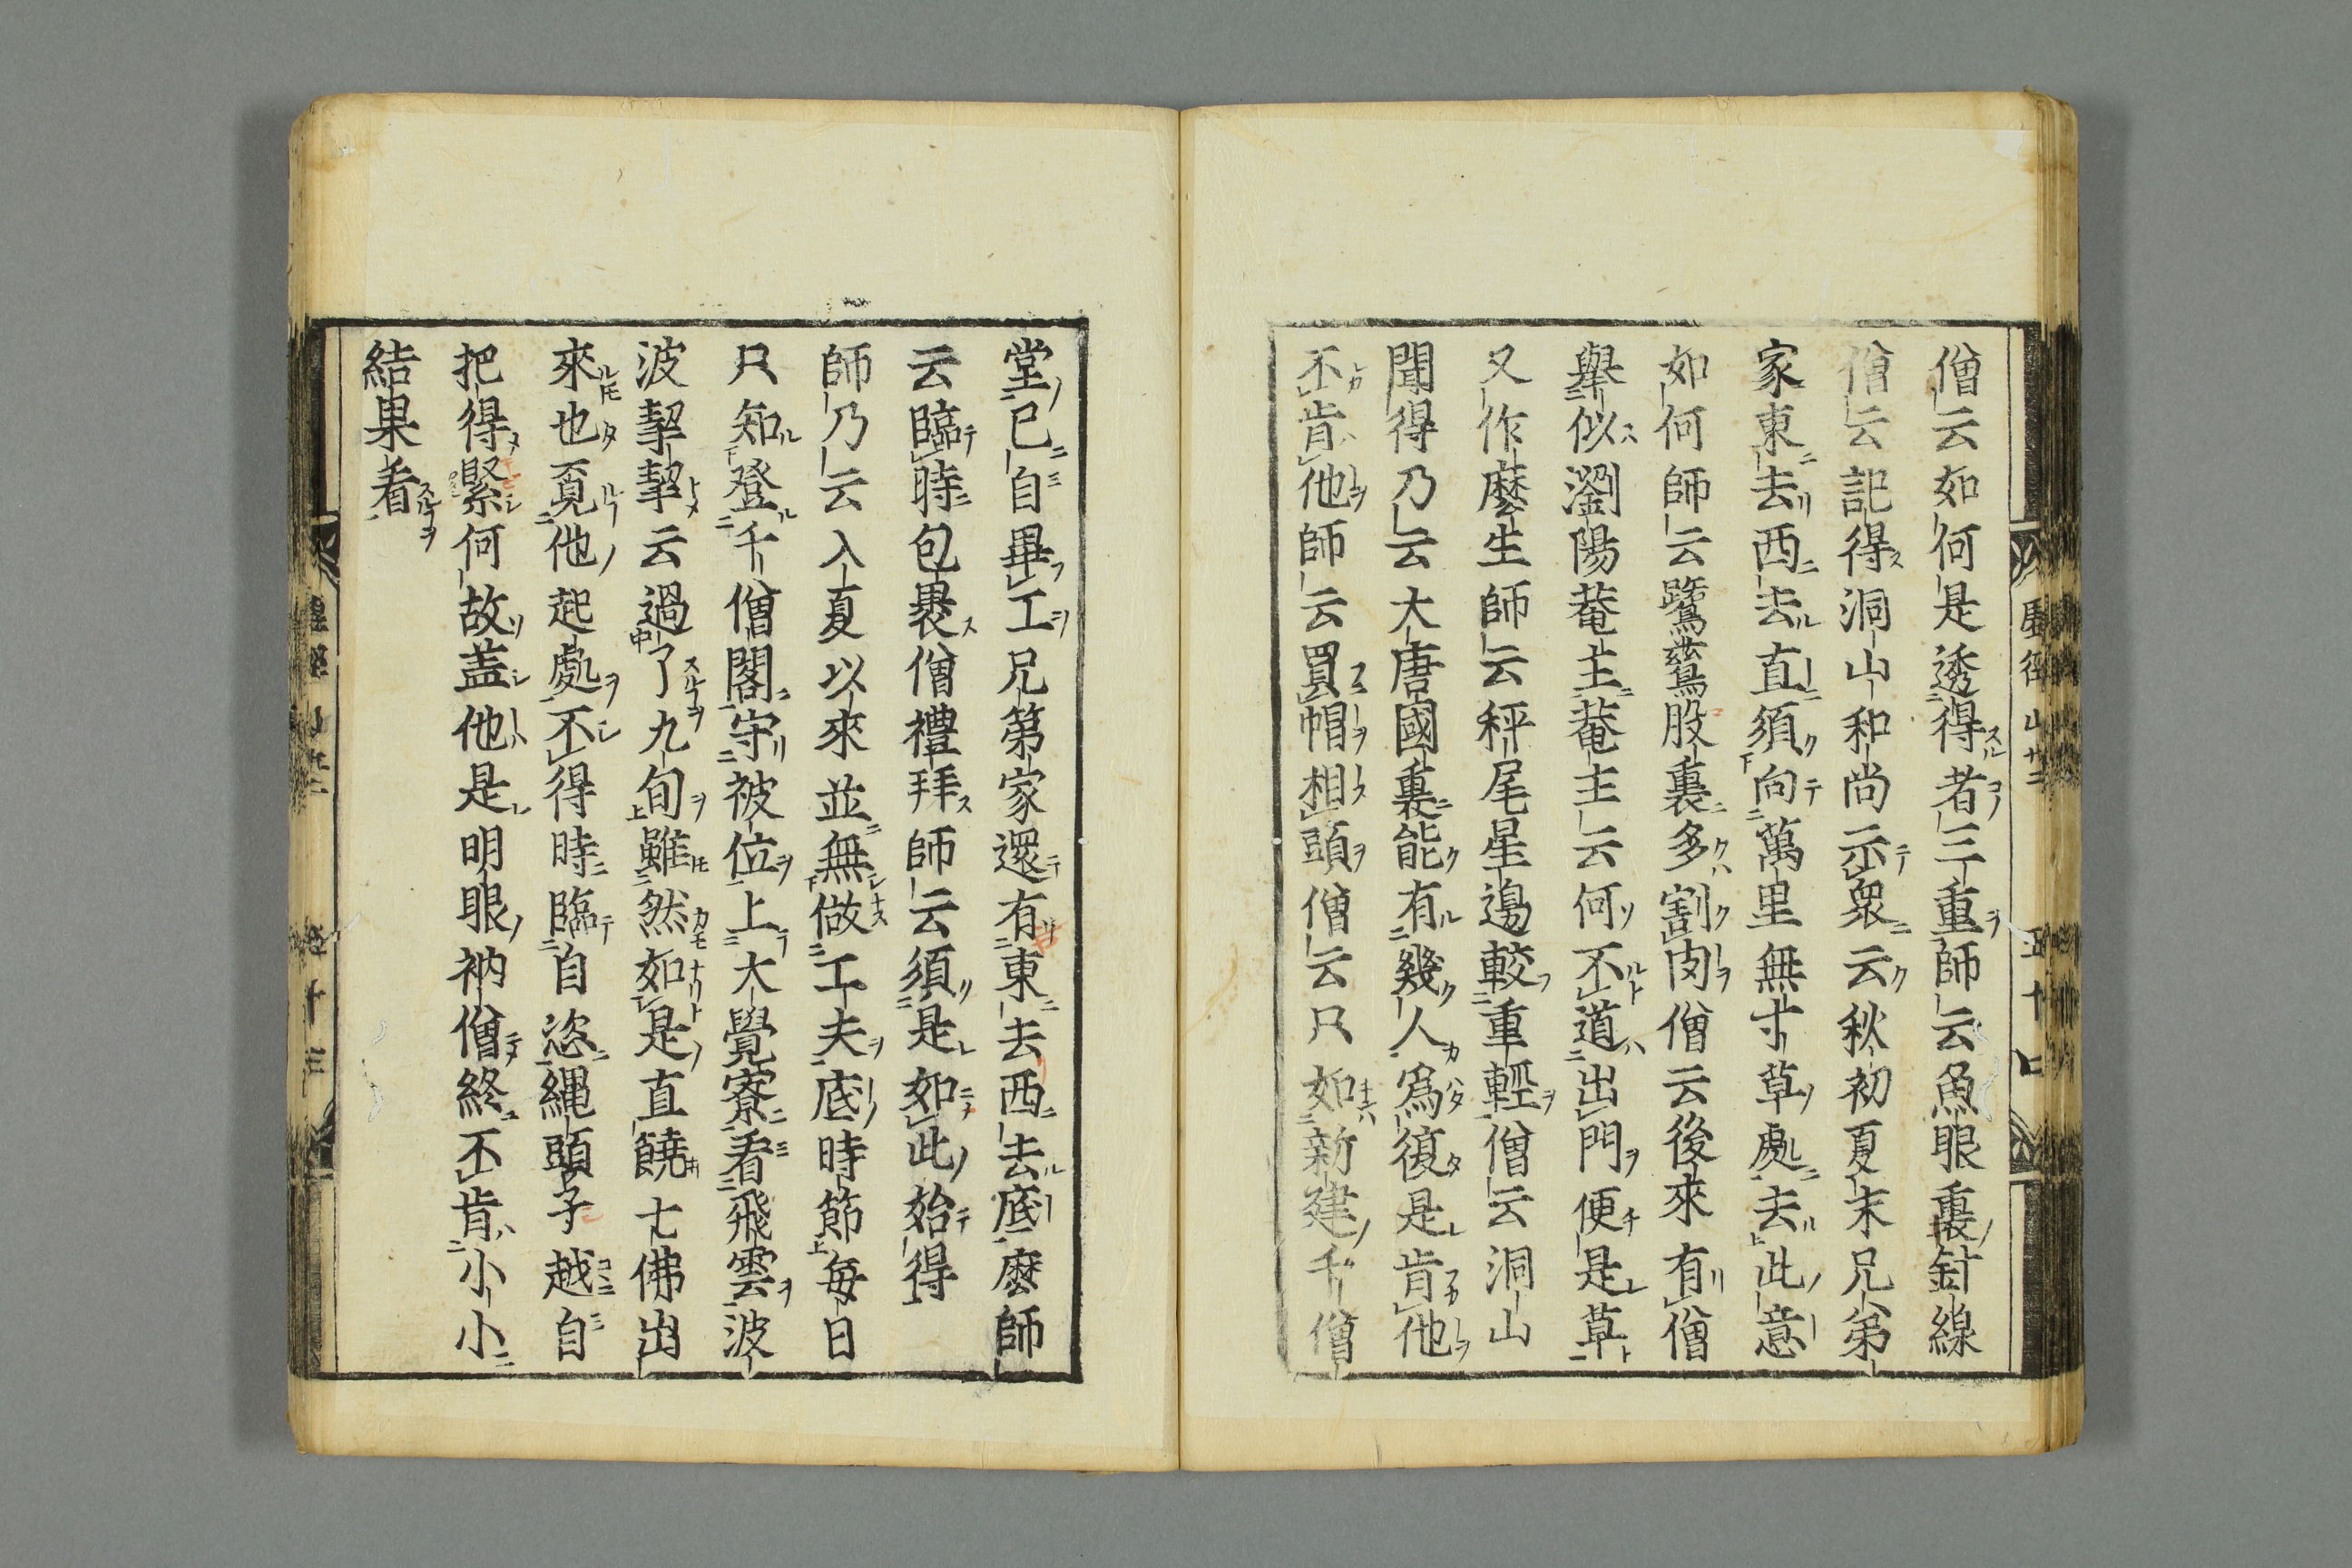 僧云如何是透得者三重師云魚眼裏針線
僧云記得洞山和尚示衆云秋初夏末兄弟
家東去西去直須向萬里無寸草處去此意
如何師云鷺鷥股裏多割肉僧云後來有僧
擧似瀏陽菴主菴主云何不道出門便是草
又作麼生師云秤尾星邊較重輕僧云洞山
聞得乃云大唐國裏能有幾人爲復是肯他
不肯他師云買帽相頭僧云只如新建千僧
堂已自畢工兄弟家還有東去西去底麼師
云臨時包裹僧禮拜師云須是如此始得
師乃云入夏以來並無做工夫底時節每日
只知登千僧閣守被位上大覺寮看飛雲波
波挈挈云過了九旬雖然如是直饒七佛出
來也覓他起處不得時臨自恣繩頭子越自
把得緊何故盖他是明眼衲僧終不肯小小
結果着